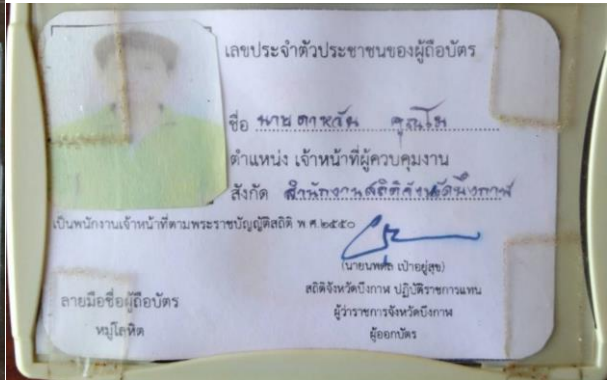 เลขประจำตัวประชาชนของผู้ถือบัตร
ชื่อ นาย
ตำแหน่ง เจ้าหน้าที่ผู้ควบคุมงาน
สังกัด สำนักงานสถิติจังหวัดบึงกาฬ
เป็นพนักงานเจ้าหน้าที่ตามพระราชบัญญัติสถิติ พ.ศ.๒๕๕๐
(นายนพดล เป้าอยู่สุข)
สถิติจังหวัดบึงกาฬ ปฏิบัติราชการแทน
ผู้ว่าราชการจังหวัดบึงกาฬ
ผู้ออกบัตร
ลายมือชื่อผู้ถือบัตร
หมู่โลหิต